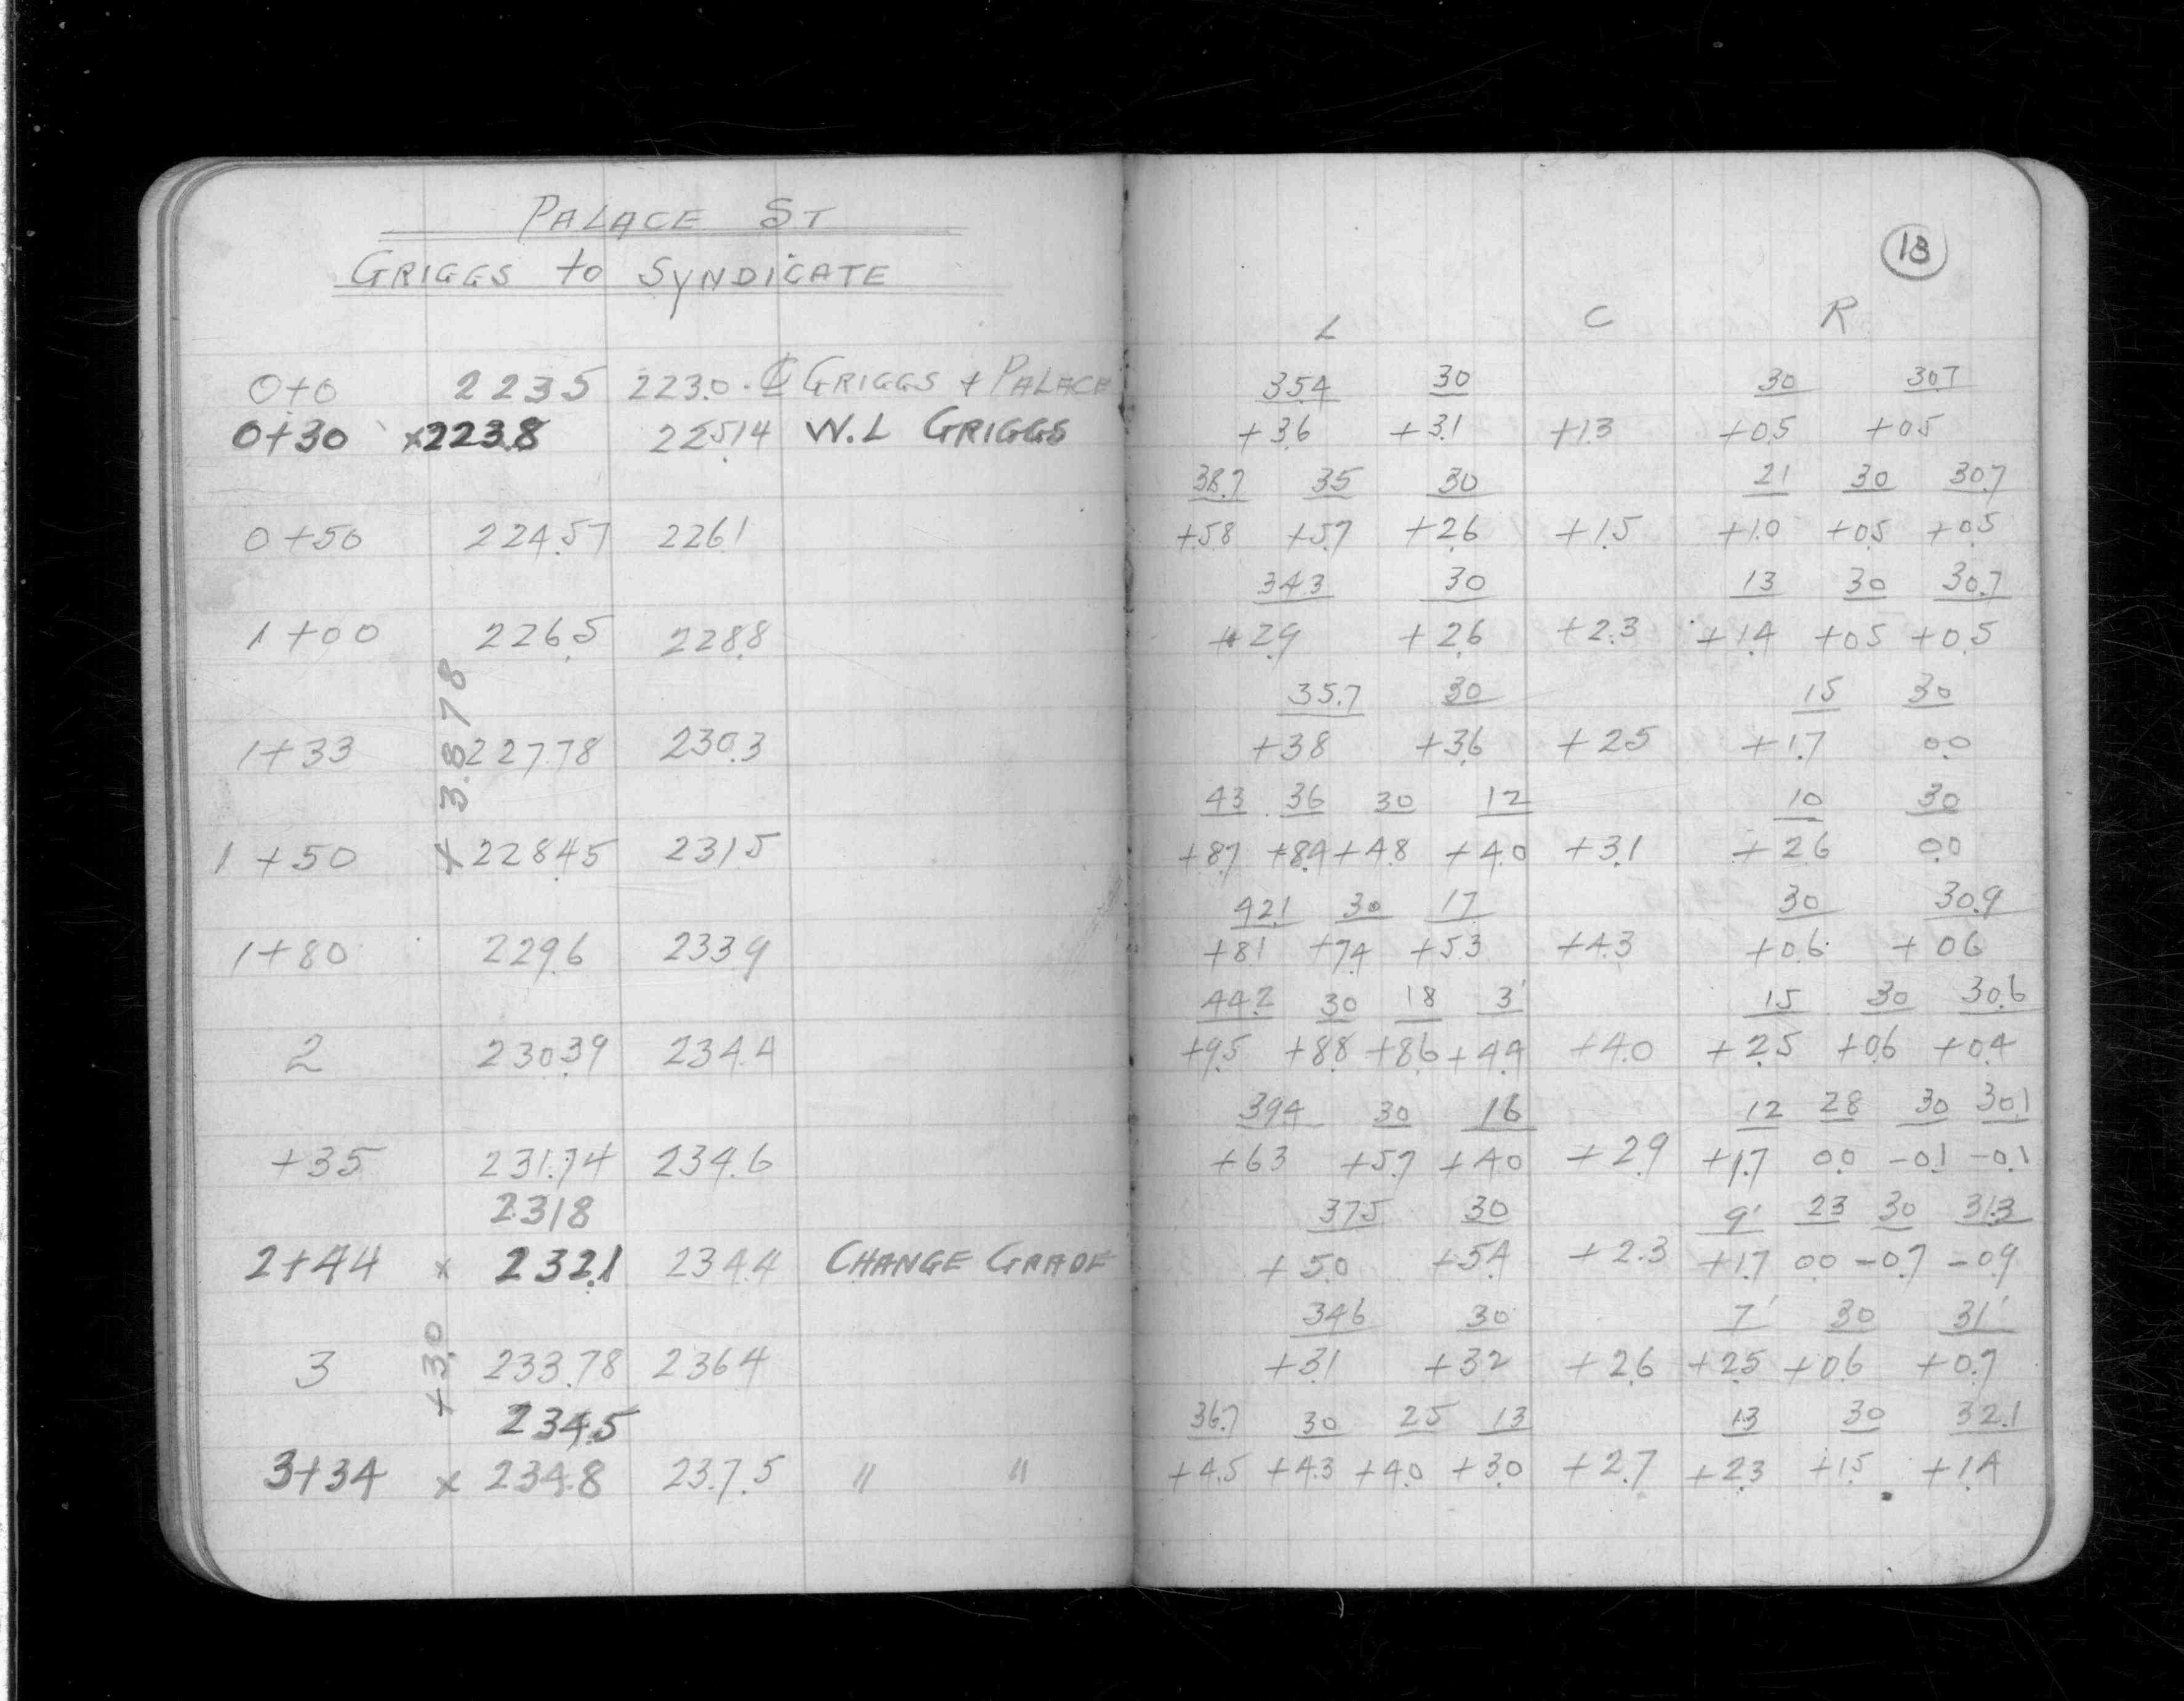 PALACE ST
GRIGGS to SYNDICATE
0+0 223.5 223.0 ℄ GRIGGS & PALACE
0+30 x223.8 225.14 W.L GRIGGS
0+50 224.57 226.1
1+00 226.5 228.8
1+33 227.78 230.3
+3.878
1+50 228.45 231.5
1+80 229.6 233.9
2 230.39 234.4
+35 231.74 234.6
231.8
2+44 x 232.1 234.4 CHANGE GRADE
+3.0
3 233.78 236.4
234.5
3+34 x 234.8 237.5 " "
13
L C R
35.4 30 30 30.7
+3.6 +3.1 +1.3 +0.5 +0.5
38.7 35 30 21 30 30.7
+5.8 +5.7 +2.6 +1.5 +1.0 +0.5 +0.5
34.3 30 13 30 30.7
+2.9 +2.6 +2.3 +1.4 +0.5 +0.5
35.7 30 15 30
+3.8 +3.6 +2.5 +1.7 0.0
43 36 30 12 10 30
+8.7 +8.4 +4.8 +4.0 +3.1 +2.6 0.0
42.1 30 17 30 30.9
+8.1 +7.4 +5.3 +4.3 +0.6 +0.6
44.2 30 18 3' 15 30 30.6
+9.5 +8.8 +8.6 +4.4 +4.0 +2.5 +0.6 +0.4
39.4 30 16 12 28 30 30.1
+6.3 +5.7 +4.0 +2.9 +1.7 0.0 -0.1 -0.1
37.5 30 9' 23 30 31.3
+5.0 +5.4 +2.3 +1.7 0.0 -0.7 -0.9
34.6 30 7' 30 31'
+3.1 +3.2 +2.6 +2.5 +0.6 +0.7
36.7 30 25 13 13 30 32.1
+4.5 +4.3 +4.0 +3.0 +2.7 +2.3 +1.5 +1.4